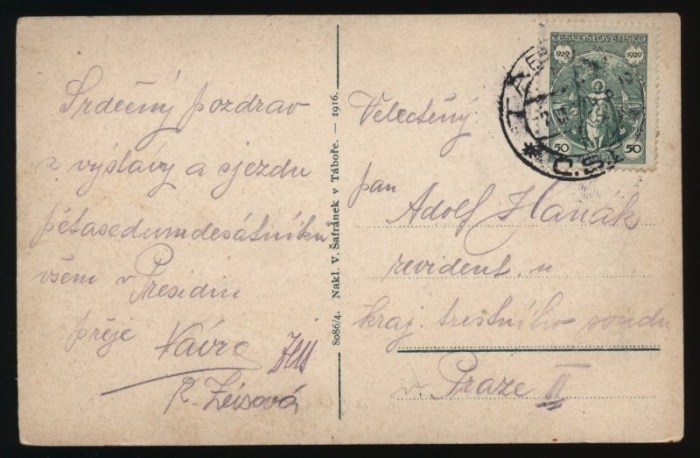 Srdečný pozdrav
z výstavy a sjezdu
pětasedumdesátníků
všem v Presidiu
přeje
R. Zeisová
8086/4. Nakl. V. Šafránek v Táboře. — 1916.
ČESKOSLOVENSKO
929 1929
50 50
TÁBOR
Č.S.
Velectěný
pan
Adolf Hanák
revident u
kraj. trestního soudu
v Praze II